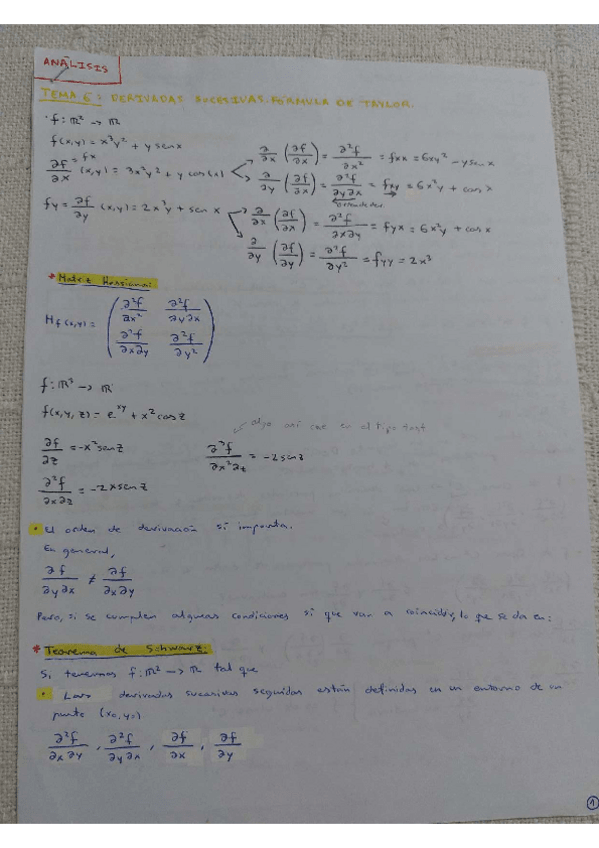 ANÁLISIS
TEMA 6: DERIVADAS SUCESIVAS. FÓRMULA DE TAYLOR.
· f: ℝ² → ℝ
f(x,y) = x³y² + y sen x
∂f/∂x = fx (x,y) = 3x²y² + y cos(x)
∂/∂x (∂f/∂x) = ∂²f/∂x² = fxx = 6xy² - y sen x
∂/∂y (∂f/∂x) = ∂²f/∂y∂x = fxy = 6x²y + cos x
fy = ∂f/∂y (x,y) = 2x³y + sen x
∂/∂x (∂f/∂x) = ∂²f/∂x∂y = fyx = 6x²y + cos x
∂/∂y (∂f/∂y) = ∂²f/∂y² = fyy = 2x³
* Matriz Hessiana:
Hf(x,y) = ( ∂²f/∂x² ∂²f/∂y∂x
∂²f/∂x∂y ∂²f/∂y² )
f: ℝ³ → ℝ
f(x,y,z) = e^xy + x² cos z
algo así cae en el tipo test
∂f/∂z = -x² sen z
∂³f/∂x²∂z = -2 sen z
∂²f/∂x∂z = -2x sen z
· El orden de derivación sí importa.
En general,
∂f/∂y∂x ≠ ∂f/∂x∂y
Pero, si se cumplen algunas condiciones sí que van a coincidir, lo que se da en:
* Teorema de Schwarz:
Si tenemos f: ℝ² → ℝ tal que
· Las derivadas sucesivas seguidas están definidas en un entorno de un
punto (x₀,y₀)
∂²f/∂x∂y , ∂²f/∂y∂x , ∂f/∂x , ∂f/∂y
1